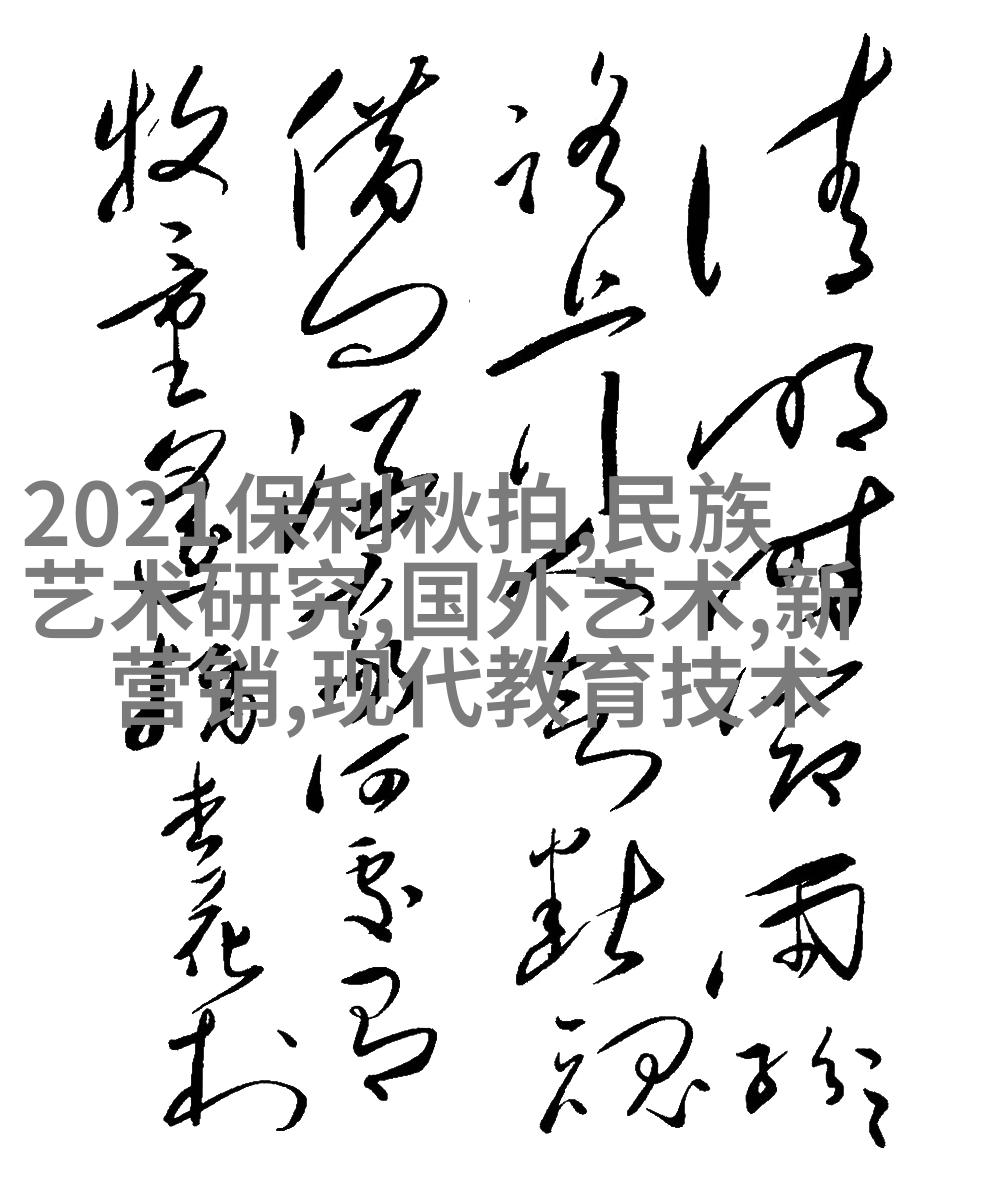 清明時節雨紛紛
路上行人欲斷魂
借問酒家何處有
牧童遙指杏花村
2021保利秋拍,民族
艺术研究,国外艺术,新
营销,现代教育技术